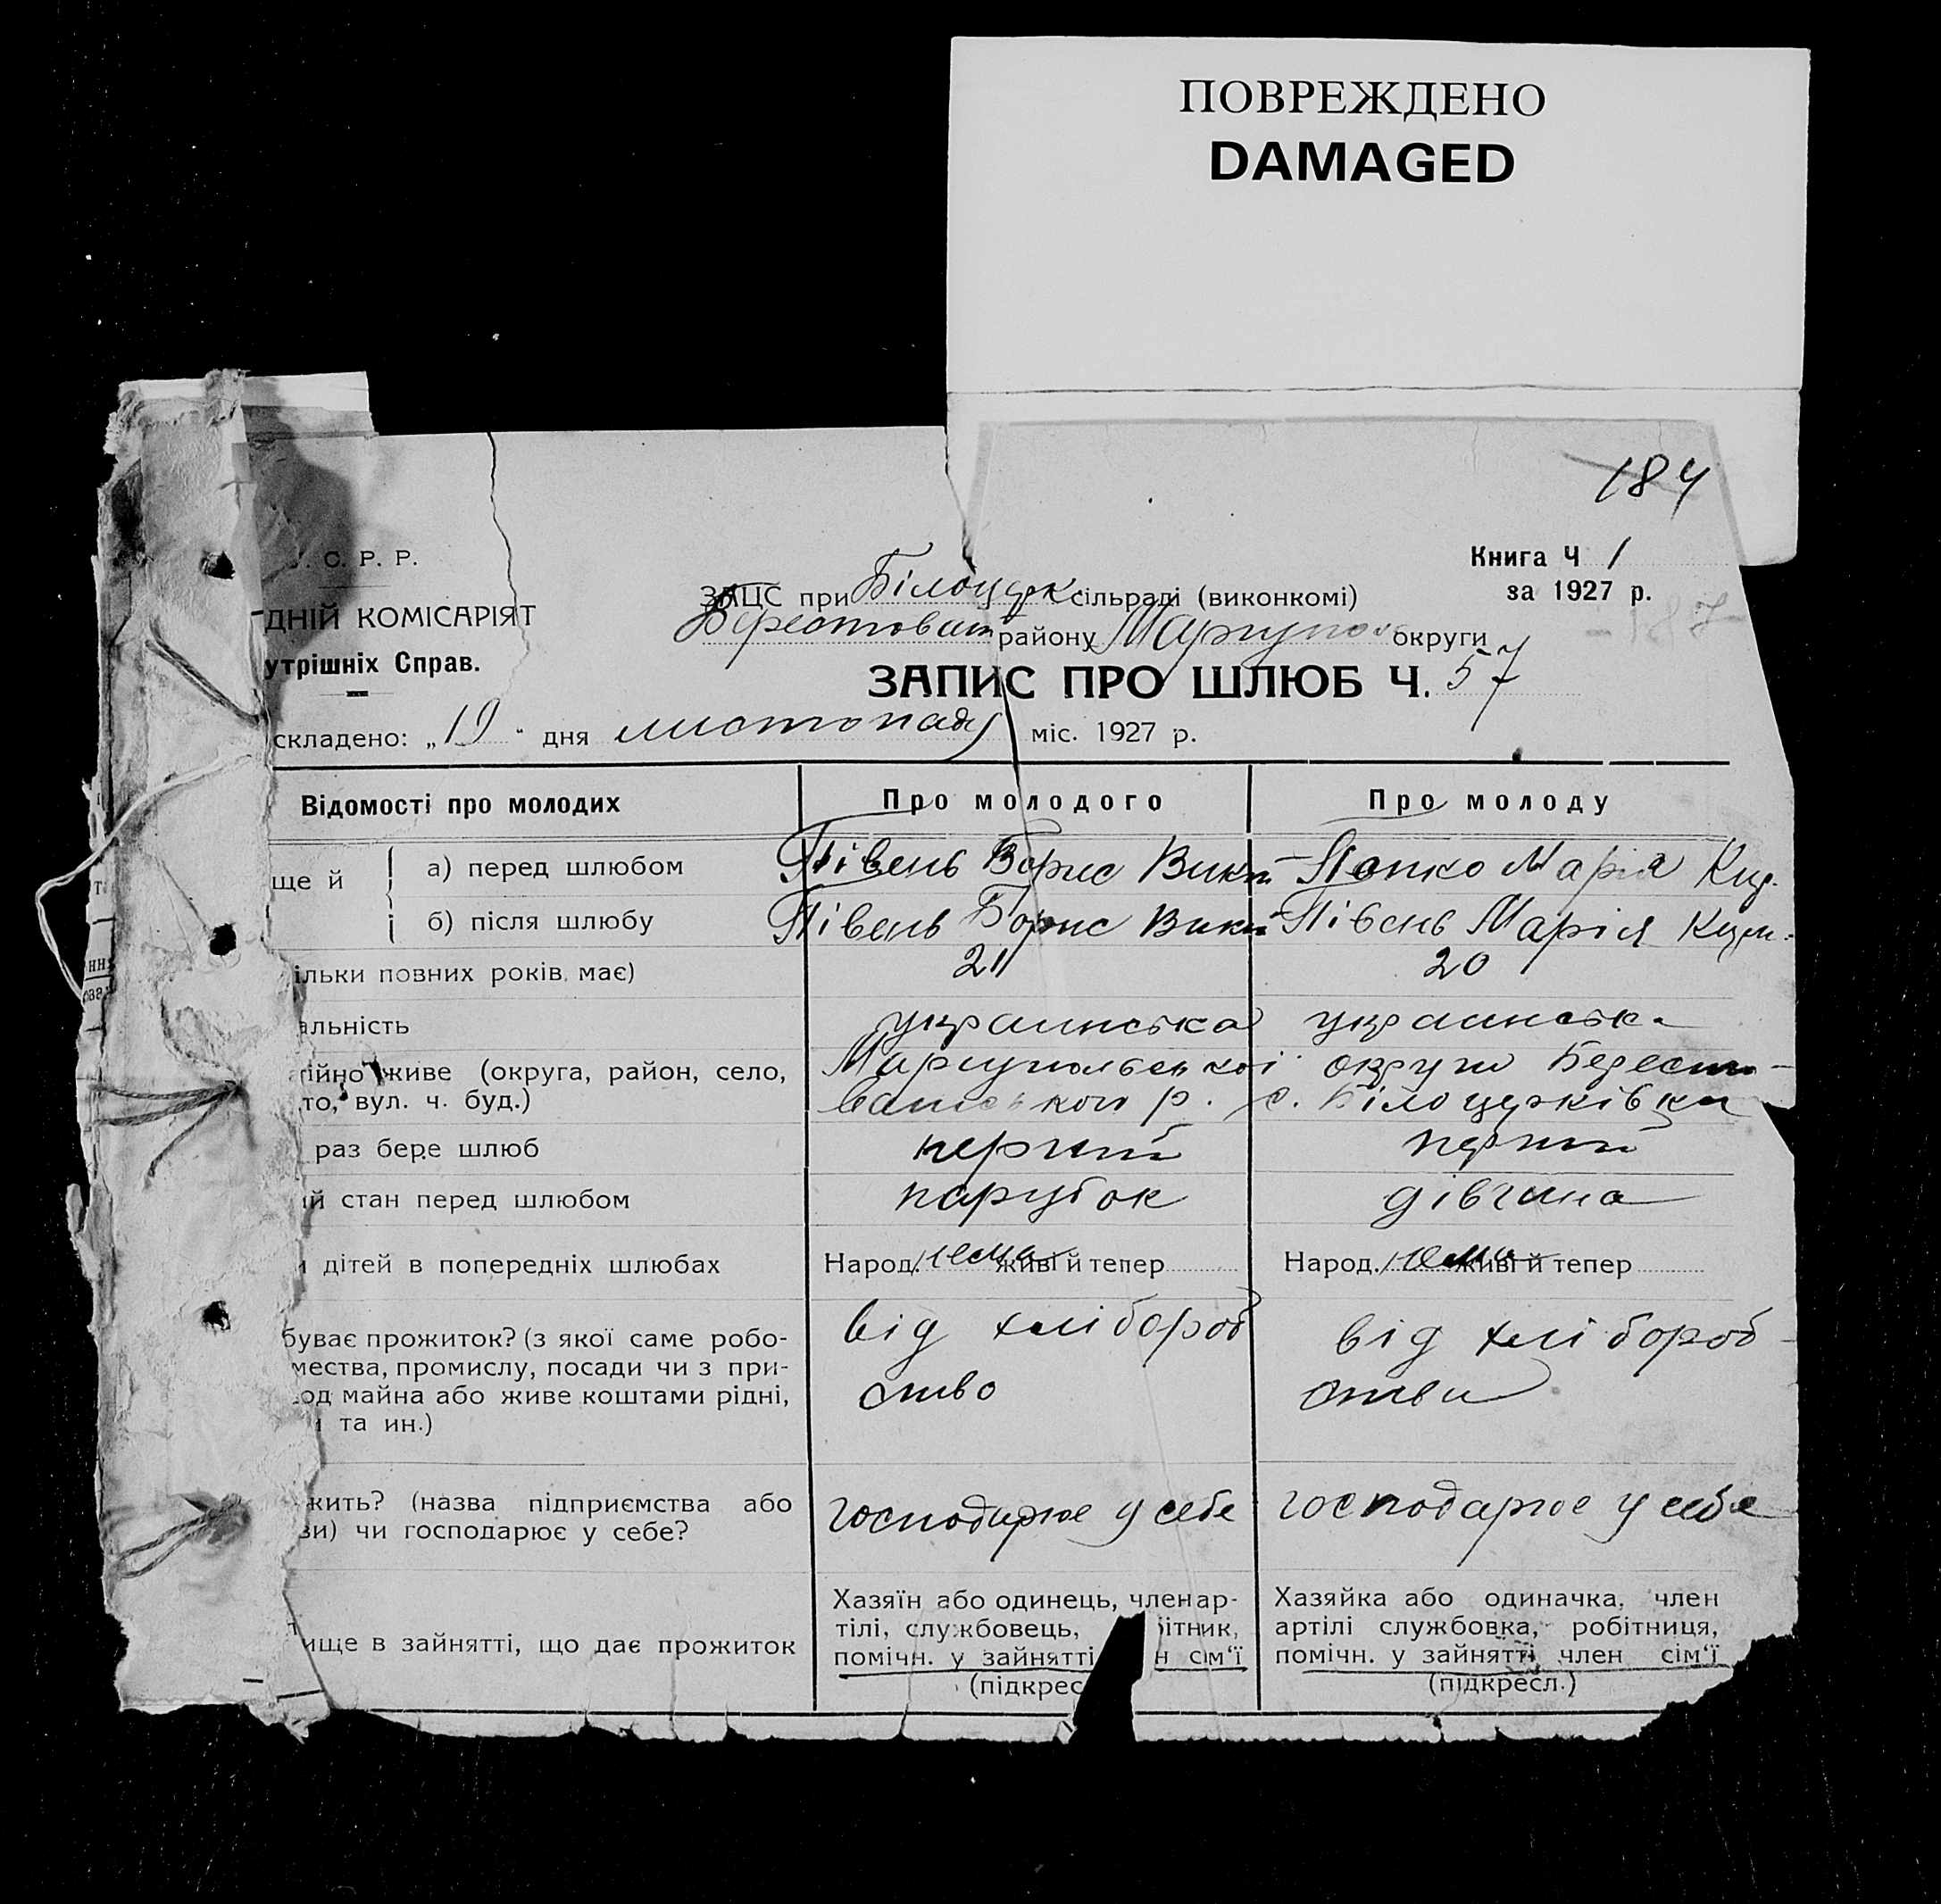 ПОВРЕЖДЕНО
DAMAGED
184
С. Р. Р.
Книга Ч 1
за 1927 р.
ДНІЙ КОМІСАРІЯТ
утрішніх Справ.
ЗАЦС при Білоцерк. сільраді (виконкомі)
району Маріупол округи
ЗАПИС ПРО ШЛЮБ Ч. 57
складено: „19" дня листопаду міс. 1927 р.
Відомості про молодих Про молодого Про молоду
ще й а) перед шлюбом Півень Борис Попко Марія
і б) після шлюбу Півень Борис Півень Марія
ільки повних років має) 21 20
альність украинська украинська
тійно живе (округа, район, село, Мариупольської округи Берестo-
то, вул. ч. буд.) р. с. Білоцерківка
раз бере шлюб перший перший
ий стан перед шлюбом парубок дівчина
и дітей в попередніх шлюбах Народ. нема живі й тепер Народ. нема живі й тепер
буває прожиток? (з якої саме робо- від хлібороб від хлібороб-
мества, промислу, посади чи з при- ство ства
од майна або живе коштами рідні,
и та ин.)
жить? (назва підприємства або господарює у себе господарює у себе
зи) чи господарює у себе?
ище в зайнятті, що дає прожиток
Хазяїн або одинець, член ар-
тілі, службовець, ітник,
помічн. у зайнятті н сім‘ї
(підкрес
Хазяйка або одиначка, член
артілі службовка, робітниця,
помічн. у зайнятті член сім‘ї
(підкресл.)